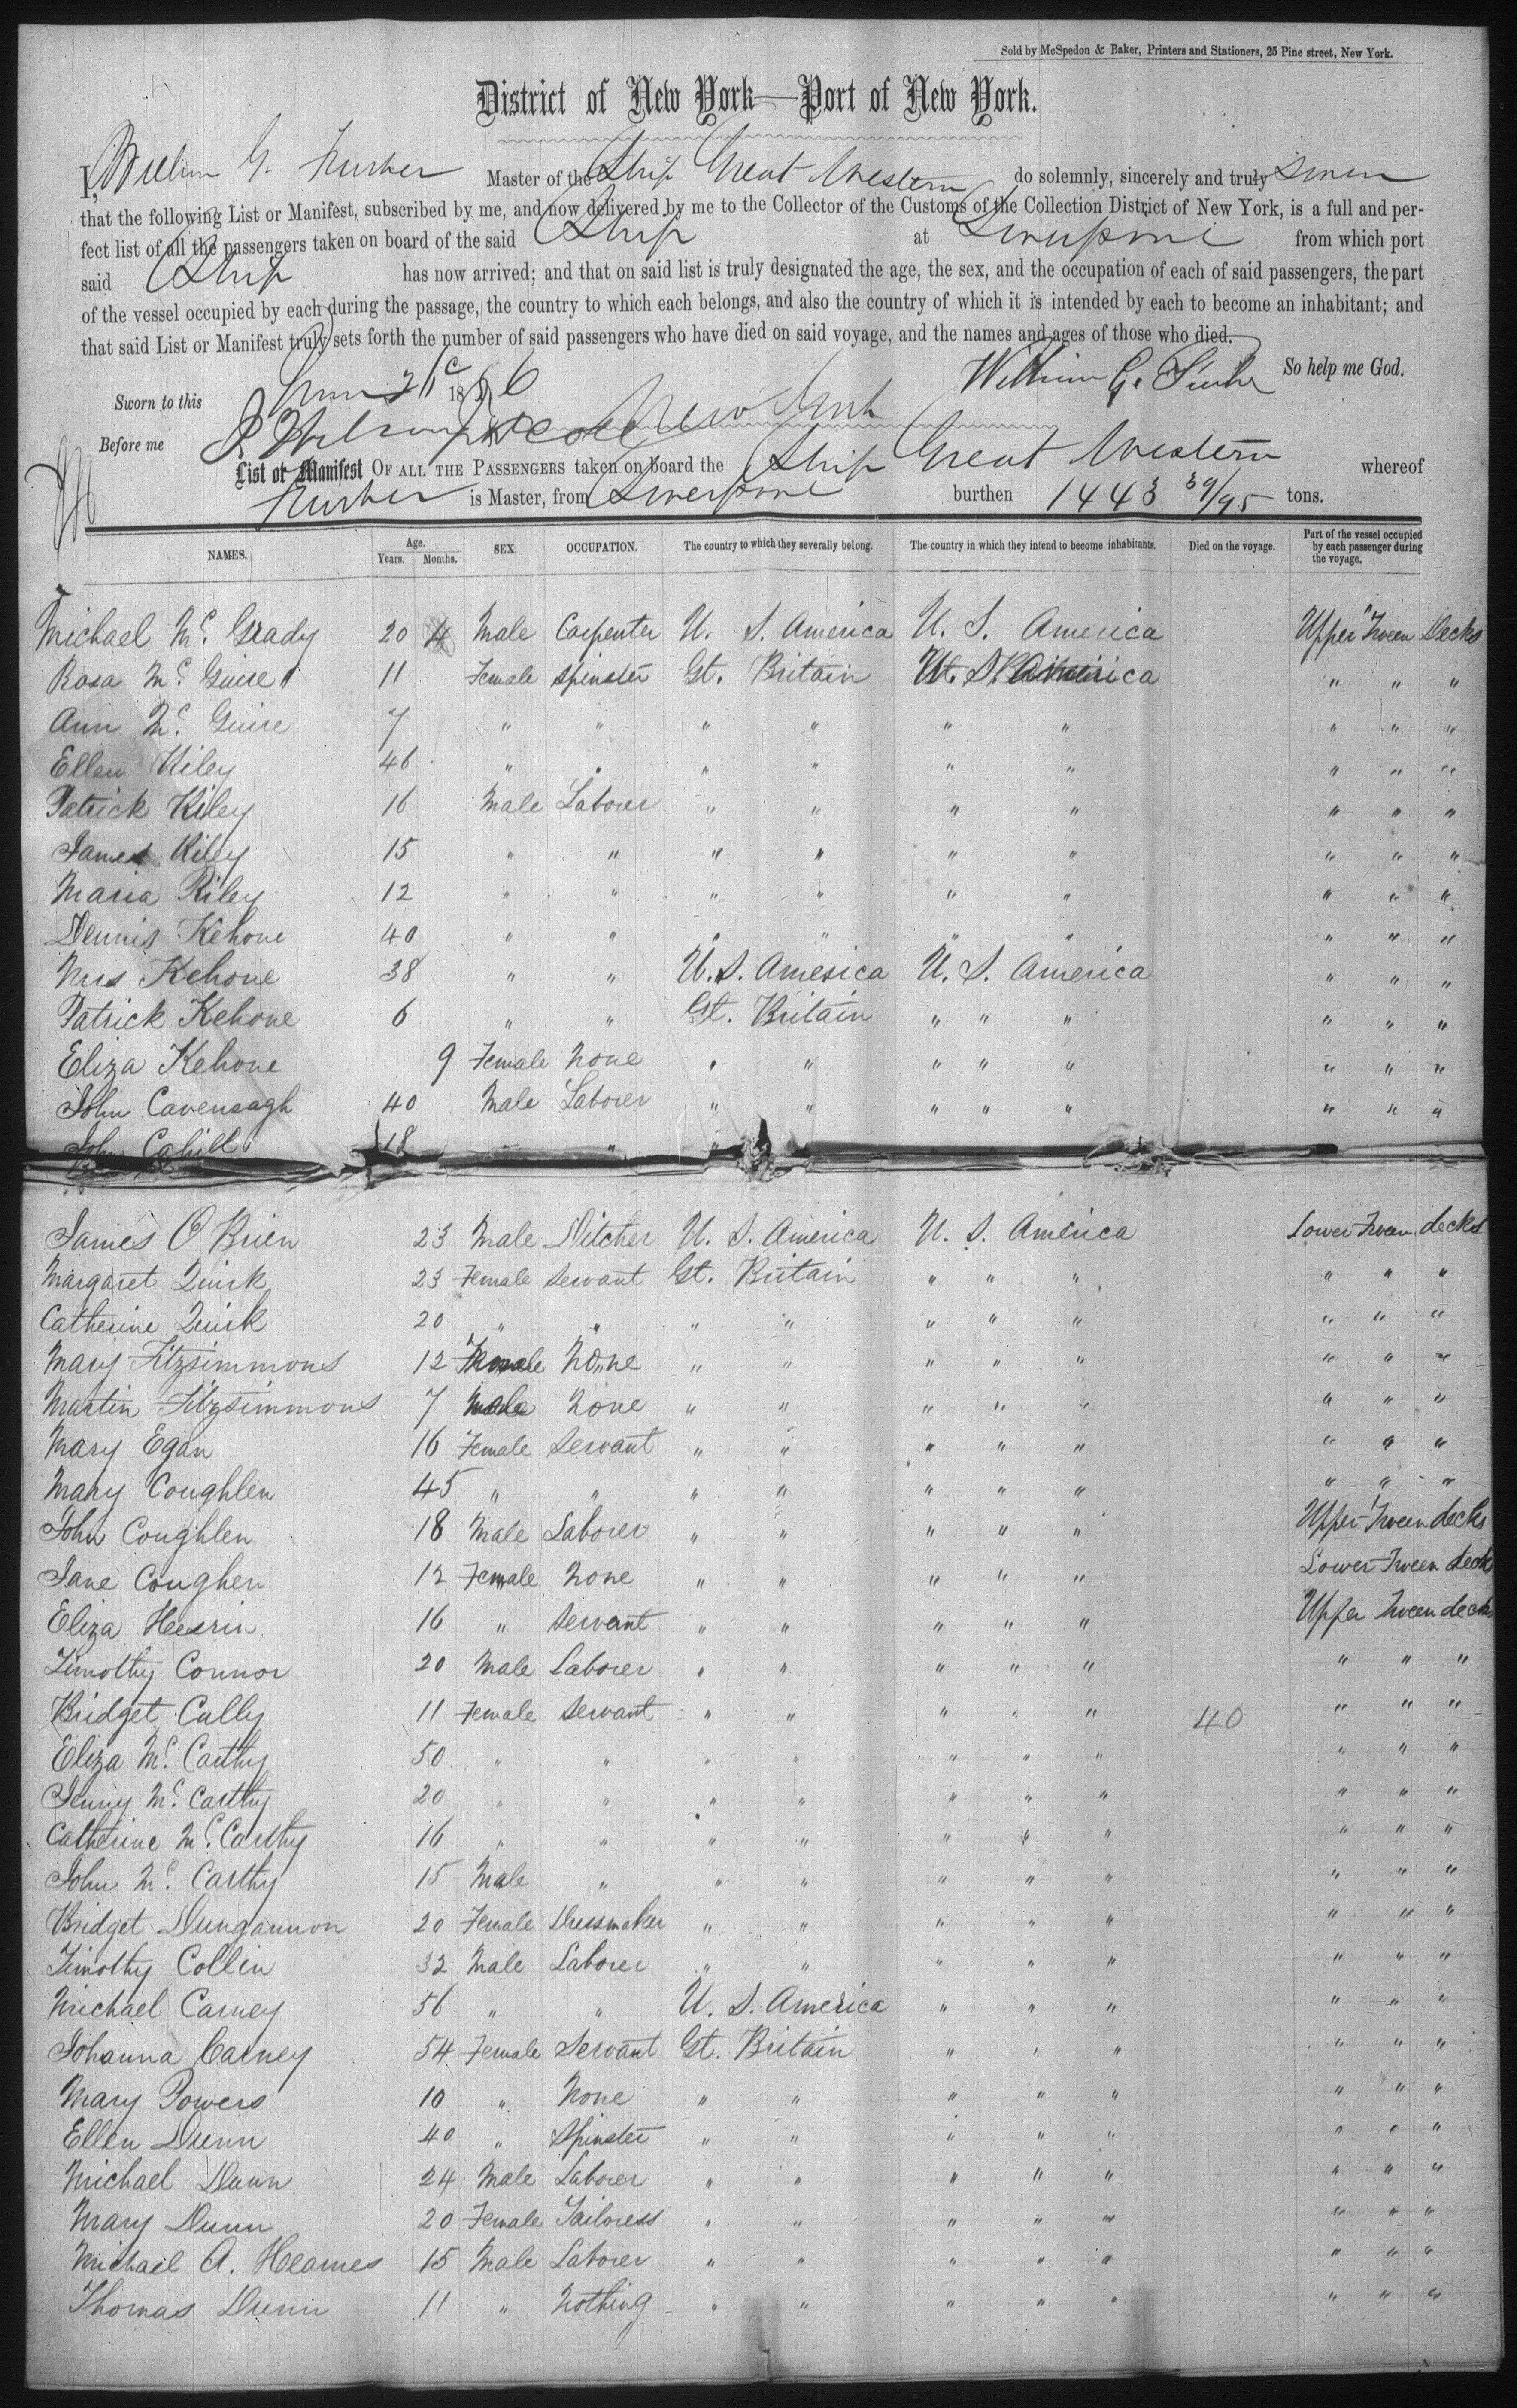 Sold by McSpedon & Baker, Printers and Stationers, 25 Pine street, New York.
District of New York—Port of New York.
I, William G. Furber Master of the Ship Great Western do solemnly, sincerely and truly swear
that the following List or Manifest, subscribed by me, and now delivered by me to the Collector of the Customs of the Collection District of New York, is a full and per-
fect list of all the passengers taken on board of the said Ship at Liverpool from which port
said Ship has now arrived; and that on said list is truly designated the age, the sex, and the occupation of each of said passengers, the part
of the vessel occupied by each during the passage, the country to which each belongs, and also the country of which it is intended by each to become an inhabitant; and
that said List or Manifest truly sets forth the number of said passengers who have died on said voyage, and the names and ages of those who died.
William G. Furber So help me God.
Sworn to this 1856
Before me New York
List or Manifest OF ALL THE PASSENGERS taken on board the Ship Great Western whereof
Furber is Master, from Liverpool burthen 1443 39/95 tons.
NAMES. Age. Years. Months. SEX. OCCUPATION. The country to which they severally belong. The country in which they intend to become inhabitants. Died on the voyage. Part of the vessel occupied by each passenger during the voyage.
Michael Mc. Grady 20 Male Carpenter U. S. America U. S. America Upper Tween Decks
Rosa Mc. Guire 11 Female Spinster Gt. Britain U. S. America " " "
Ann Mc. Guire 7 " " " " " " " " "
Ellen Kiley 46 " " " " " " " " "
Patrick Kiley 16 Male Laborer " " " " " " "
James Kiley 15 " " " " " " " " "
Maria Riley 12 " " " " " " " " "
Dennis Kehoue 40 " " " " " " " " "
Mrs Kehoue 38 " " U. S. America U. S. America " " "
Patrick Kehoue 6 " " Gt. Britain " " " " " "
Eliza Kehoue 9 Female None " " " " " " " "
John Cavenaagh 40 Male Laborer " " " " " " " "
John Cahill 18 " " "
James O Brien 23 Male Ditcher U. S. America U. S. America Lower Tween decks
Margaret Quirk 23 Female Servant Gt. Britain " " " " " "
Catherine Quirk 20 " " " " " " " " " "
Mary Fitzsimmons 12 Female None " " " " " " " "
Martin Fitzsimmons 7 Male None " " " " " " " "
Mary Egan 16 Female Servant " " " " " " " "
Mary Coughlen 45 " " " " " " " " " "
John Coughlen 18 Male Laborer " " " " " Upper Tween decks
Jane Coughen 12 Female None " " " " " Lower Tween deck
Eliza Heesrin 16 " Servant " " " " " Upper Tween decks
Timothy Connor 20 Male Laborer " " " " " " " "
Bridget Cully 11 Female Servant " " " " " 40 " " "
Eliza Mc. Carthy 50 " " " " " " " " " "
Jenny Mc. Carthy 20 " " " " " " " " " "
Catherine Mc. Carthy 16 " " " " " " " " " "
John Mc. Carthy 15 Male " " " " " " " " "
Bridget Dungannon 20 Female Dressmaker " " " " " " " "
Timothy Collin 32 Male Laborer " " " " " " " "
Michael Carney 56 " " U. S. America " " " " " "
Johanna Carney 54 Female Servant Gt. Britain " " " " " "
Mary Powers 10 " None " " " " " " " "
Ellen Dunn 40 " Spinster " " " " " " " "
Michael Dunn 24 Male Laborer " " " " " " " "
Mary Dunn 20 Female Tailoress " " " " " " " "
Michael A. Hearnes 15 Male Laborer " " " " " " " "
Thomas Dunn 11 " Nothing " " " " " " " "